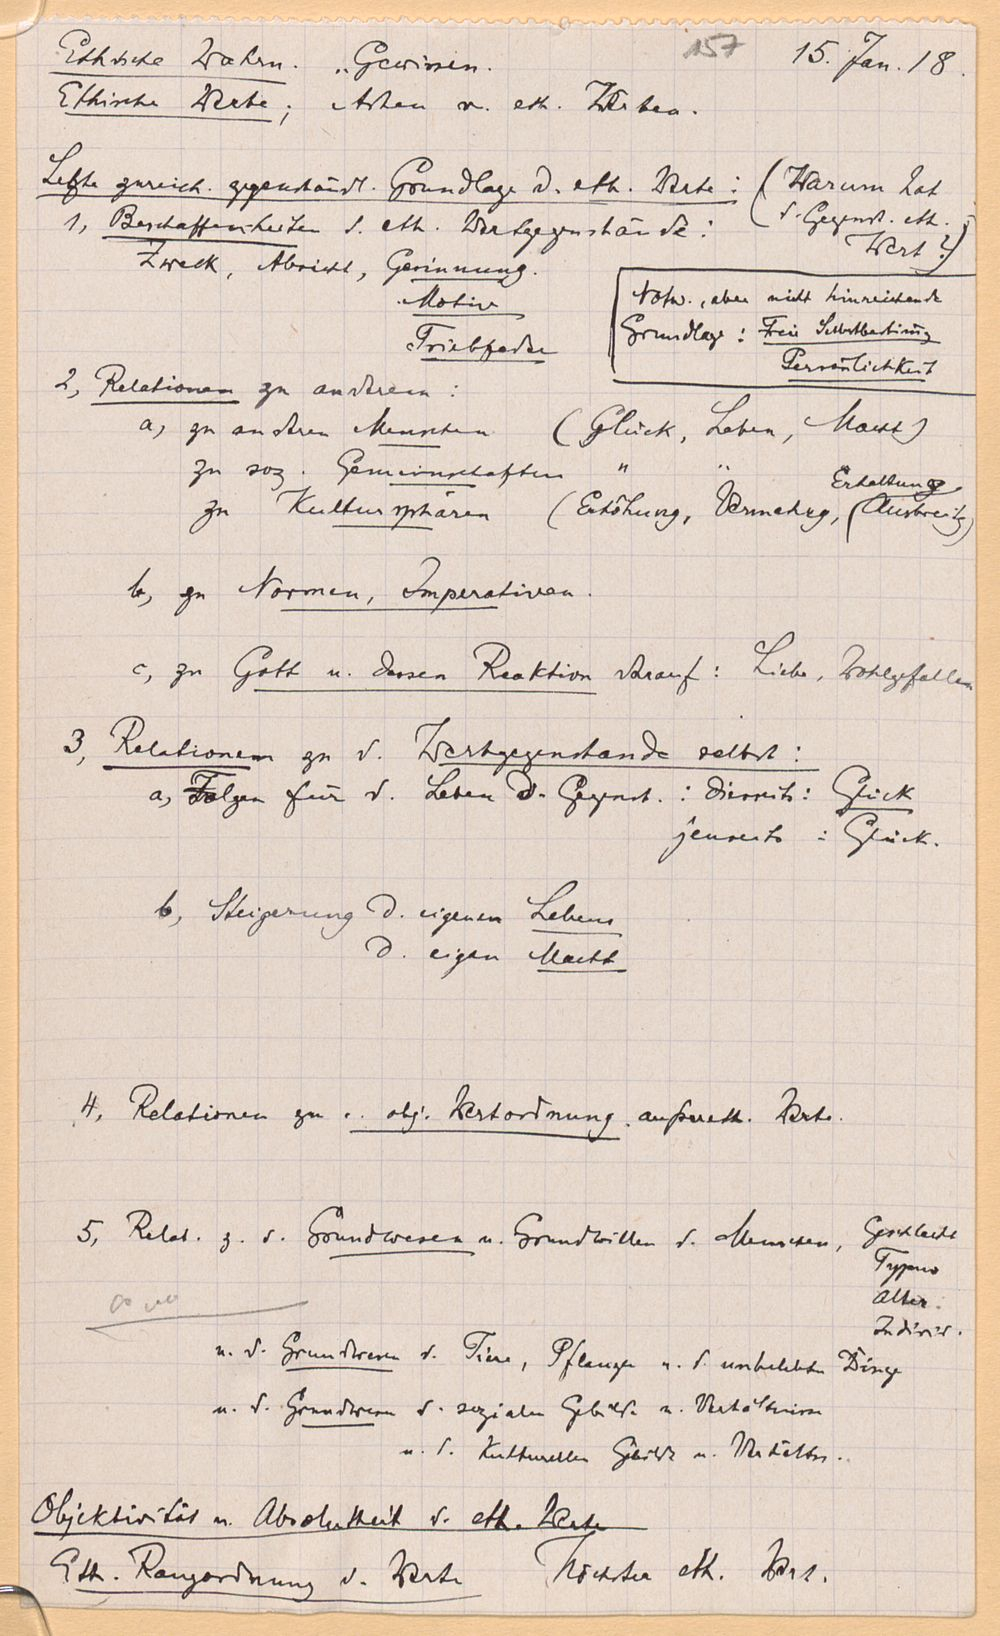 157
15. Jan. 18.
Ethische Wahrn. „Gewissen.
Ethische Werte; Arten v. eth. Werten.
Letzte zureich. gegenständl. Grundlage d. eth. Werte: (Warum hat
d. Gegenst. eth.
Wert?)
1, Beschaffenheiten d. eth. Wertgegenstände:
Zweck, Absicht, Gesinnung.
Motiv
Triebfeder
Notw., aber nicht hinreichende
Grundlage: Freie Selbstbestimg
Persönlichkeit
2, Relationen zu anderem:
a, zu anderen Menschen (Glück, Leben, Macht)
zu soz. Gemeinschaften " "
Erhaltung
zu Kultursphären (Erhöhung, Vermehrg, (Ausbreitg)
b, zu Normen, Imperativen.
c, zu Gott u. dessen Reaktion darauf: Liebe, Wohlgefallen
3, Relationen zu d. Wertgegenstande selbst:
a, Folgen für d. Leben d. Gegenst.: diesseits: Glück
jenseits: Glück.
b, Steigerung d. eigenen Lebens
d. eigen Macht
4, Relationen zu obj. Wertordnung außereth. Werte.
5, Relat. z. d. Grundwesen u. Grundwillen d. Menschen, Geschlecht
Typus
Alter
Individ.
u. d. Grundwesen d. Tiere, Pflanzen u. d. unbelebten Dinge
u. d. Grundwesen d. sozialen Gebilde u. Verhältnisse
u. d. Kulturellen Gebilde u. Verhältn.
Objektivität u. Absolutheit d. eth. Werte
Eth. Rangordnung d. Werte Höchster eth. Wert.